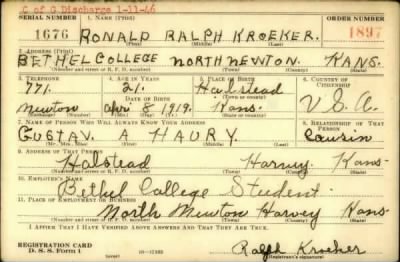 C of G Discharge 1-11-46
SERIAL NUMBER 1. NAME (Print) ORDER NUMBER
1676 RONALD RALPH KROEKER. 1897
2. ADDRESS (Print)
BETHEL COLLEGE NORTH NEWTON. KANS.
3. TELEPHONE 4. AGE IN YEARS 5. PLACE OF BIRTH 6. COUNTRY OF CITIZENSHIP
771. 21. Halstead
DATE OF BIRTH
Newton Apr 8, 1919. Kans. U.S.A.
7. NAME OF PERSON WHO WILL ALWAYS KNOW YOUR ADDRESS 8. RELATIONSHIP OF THAT PERSON
GUSTAV. A HAURY. Cousin
(Mr., Mrs., Miss)
9. ADDRESS OF THAT PERSON
Halstead Harvey Kans
(Number and street or R. F. D. number) (Town) (County) (State)
10. EMPLOYER'S NAME
Bethel College Student.
11. PLACE OF EMPLOYMENT OR BUSINESS
North Newton Harvey Kans
(Number and street or R. F. D. number) (Town) (County) (State)
I AFFIRM THAT I HAVE VERIFIED ABOVE ANSWERS AND THAT THEY ARE TRUE.
REGISTRATION CARD
D. S. S. Form 1 (over) Ralph Kroeker
(Registrant's signature)